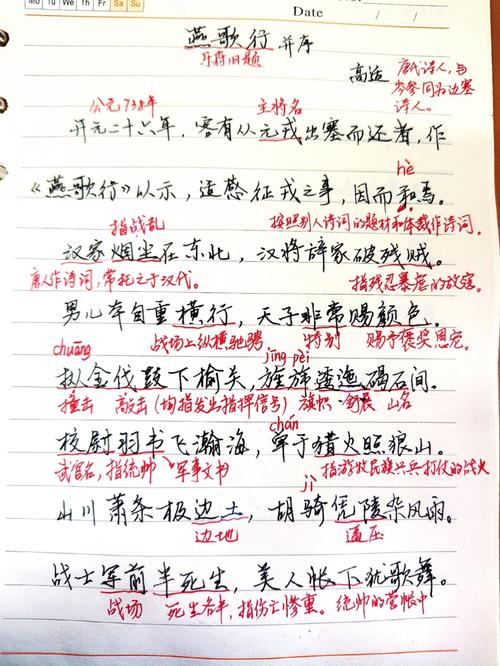 Mo Tu We Th Fr Sa Su
Date / /
燕歌行 并序
乐府旧题
高适 唐代诗人,与
岑参同为边塞
诗人。
公元738年 主将名
开元二十六年,客有从元戎出塞而还者,作
hè
《燕歌行》以示,适感征戍之事,因而和焉。
指战乱 按照别人诗词的题材和体裁作诗词。
汉家烟尘在东北,汉将辞家破残贼。
唐人作诗词,常托之于汉代。 指残忍暴虐的敌寇。
男儿本自重横行,天子非常赐颜色。
chuāng 战场上纵横驰骋 jīng pèi 特别 赐予褒奖恩宠。
摐金伐鼓下榆关,旌旆逶迤碣石间。
撞击 敲击(均指发出指挥信号) 旗帜 舒展 山名
chán
校尉羽书飞瀚海,单于猎火照狼山。
武官名,指统帅 军事文书 指游牧民族兴兵打仗的战火
jì
山川萧条极边土,胡骑凭陵杂风雨。
边地 逼压
战士军前半死生,美人帐下犹歌舞。
战场 死生各半,指伤亡惨重。 统帅的营帐中